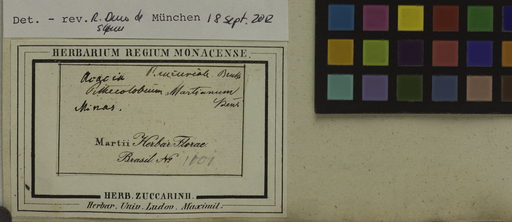 Det. - rev. R. Duno de München 18 Sept. 2012
HERBARIUM REGIUM MONACENSE.
Acacia
Benth
Pithecolobium Martianum
Benth
Minas.
Martii Herbar Florae
Brasil No 1101
HERB. ZUCCARINII.
Herbar. Univ. Ludov. Maximil.